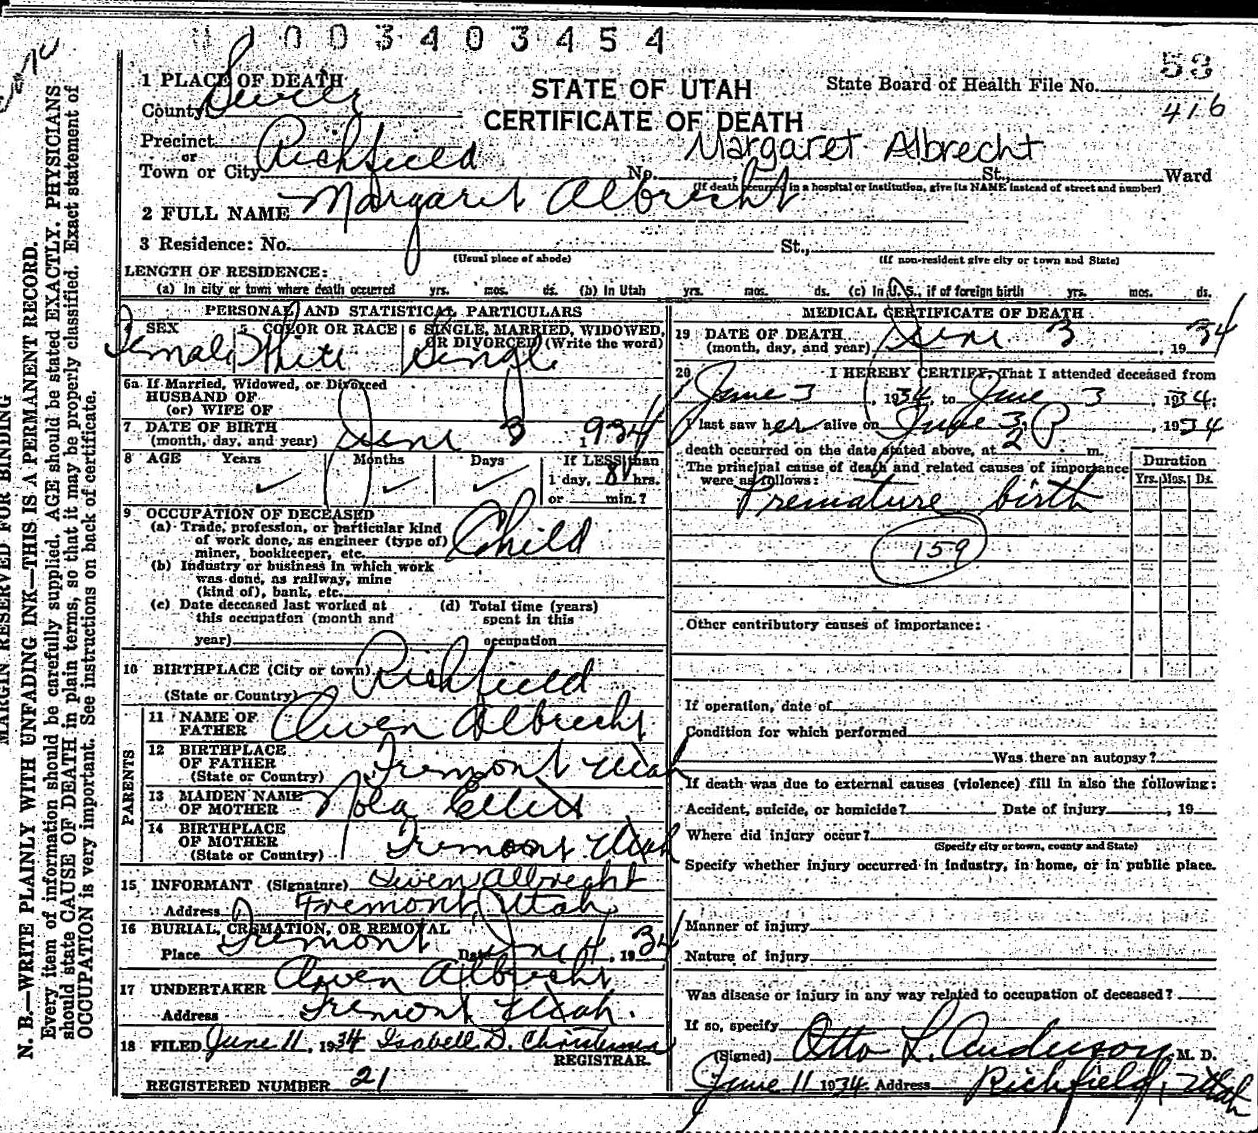 1 0 0 3 4 0 3 4 5 4
53
416
STATE OF UTAH
CERTIFICATE OF DEATH
State Board of Health File No.
1 PLACE OF DEATH
County Sevier
Precinct
or
Town or City Richfield
Margaret Albrecht
No. St., Ward
(If death occurred in a hospital or institution, give its NAME instead of street and number)
2 FULL NAME Margaret Albrecht
3 Residence: No. St.,
(Usual place of abode) (If non-resident give city or town and State)
LENGTH OF RESIDENCE:
(a) In city or town where death occurred yrs. mos. ds. (b) In Utah yrs. mos. ds. (c) In U. S., if of foreign birth yrs. mos. ds.
PERSONAL AND STATISTICAL PARTICULARS
4 SEX Female
5 COLOR OR RACE White
6 SINGLE, MARRIED, WIDOWED, OR DIVORCED (Write the word) Single
6a If Married, Widowed, or Divorced
HUSBAND OF
(or) WIFE OF
7 DATE OF BIRTH
(month, day, and year) June 3 1934
8 AGE Years Months Days If LESS than
1 day, 8 hrs.
or min.?
9 OCCUPATION OF DECEASED
(a) Trade, profession, or particular kind
of work done, as engineer (type of)
miner, bookkeeper, etc. Child
(b) Industry or business in which work
was done, as railway, mine
(kind of), bank, etc.
(c) Date deceased last worked at
this occupation (month and
year)
(d) Total time (years)
spent in this
occupation
10 BIRTHPLACE (City or town) Richfield
(State or Country)
PARENTS
11 NAME OF
FATHER Owen Albrecht
12 BIRTHPLACE
OF FATHER
(State or Country) Fremont Utah
13 MAIDEN NAME
OF MOTHER Nola Ellett
14 BIRTHPLACE
OF MOTHER
(State or Country) Fremont Utah
15 INFORMANT (Signature) Owen Albrecht
Address Fremont, Utah
16 BURIAL, CREMATION, OR REMOVAL
Place Fremont Date June 4, 1934
17 UNDERTAKER Owen Albrecht
Address Fremont Utah.
18 FILED June 11, 1934 Isabell D. Christensen
REGISTRAR.
REGISTERED NUMBER 21
MEDICAL CERTIFICATE OF DEATH
19 DATE OF DEATH
(month, day, and year) June 3, 1934
20 I HEREBY CERTIFY, That I attended deceased from
June 3, 1934, to June 3 1934;
I last saw her alive on June 3, 1934
death occurred on the date stated above, at 2 P m.
The principal cause of death and related causes of importance
were as follows:
Duration
Yrs. Mos. Ds.
Premature birth
159
Other contributory causes of importance:
If operation, date of
Condition for which performed
Was there an autopsy?
If death was due to external causes (violence) fill in also the following:
Accident, suicide, or homicide? Date of injury, 19
Where did injury occur?
(Specify city or town, county and State)
Specify whether injury occurred in industry, in home, or in public place.
Manner of injury
Nature of injury
Was disease or injury in any way related to occupation of deceased?
If so, specify
(Signed) Otto L. Anderson, M. D.
June 11 1934 Address Richfield, Utah
MARGIN RESERVED FOR BINDING
N. B.—WRITE PLAINLY WITH UNFADING INK—THIS IS A PERMANENT RECORD.
Every item of information should be carefully supplied. AGE should be stated EXACTLY. PHYSICIANS
should state CAUSE OF DEATH in plain terms, so that it may be properly classified. Exact statement of
OCCUPATION is very important. See instructions on back of certificate.